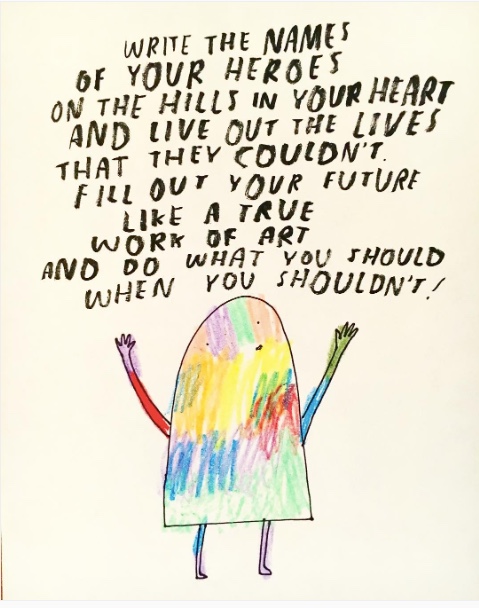 WRITE THE NAMES
OF YOUR HEROES
ON THE HILLS IN YOUR HEART
AND LIVE OUT THE LIVES
THAT THEY COULDN'T.
FILL OUT YOUR FUTURE
LIKE A TRUE
WORK OF ART
AND DO WHAT YOU SHOULD
WHEN YOU SHOULDN'T!